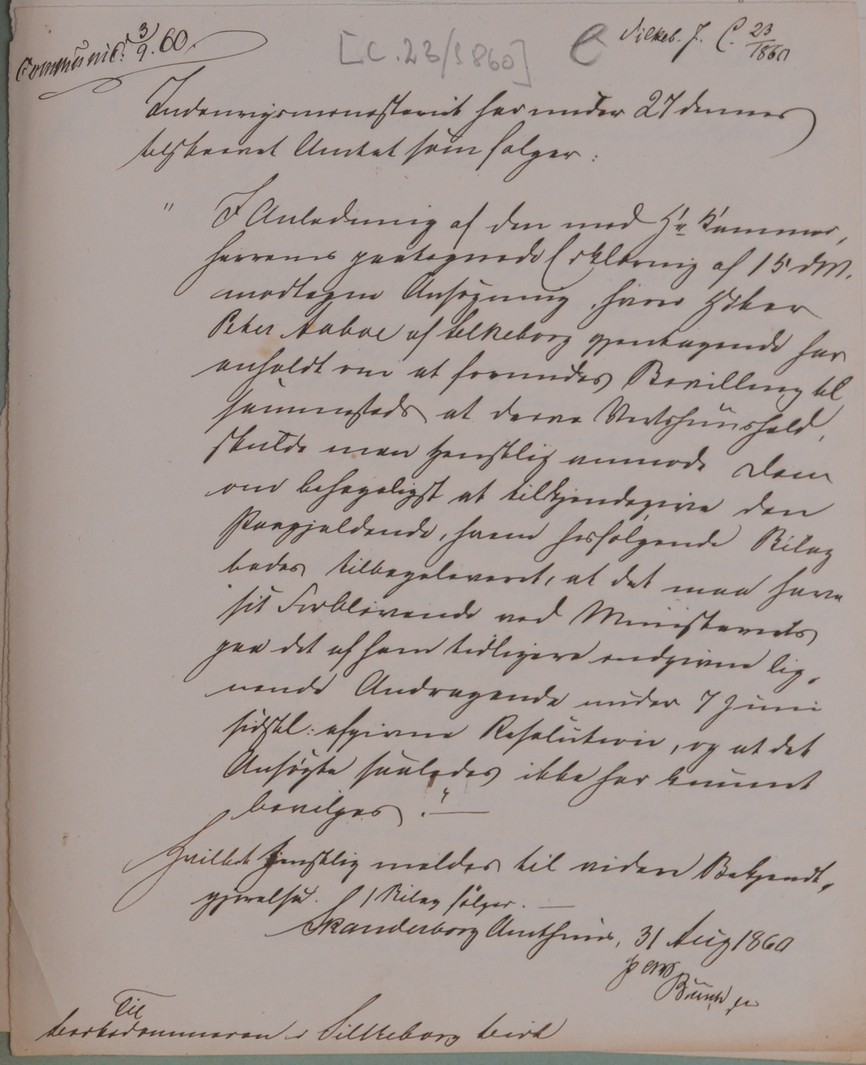 Communic: 3/9. 60.
[C. 23/1860]
Silkeb. J. C. 23/1860
Indenrigsministeriet har under 27 dennes
tilskrevet Amtet som følger:
" I Anledning af den med Hr Kammer,
herrens paategnede Erklæring af 15 dM.
modtagne Ansøgning, hvori
Peter Aaboe af Silkeborg gjentagende har
anholdt om at forundes Bevilling til
sammesteds at drive Værtshuushold,
skulde man tjenstlig anmode Dem
om behageligst at tilkjendegive den
Paagjældende, hvem hosfølgende Bilag
bedes tilbageleveret, at det maa have
sit Forblivende ved Ministeriets
paa det af ham tidligere indgivne lig,
nende Andragende under 7 Juni
sidstl: afgivne Resolution, og at det
Ansøgte saaledes ikke har kunnet
bevilges."
Hvilket tjenstlig meldes til videre Bekjendt,
gjørelse. 1 Bilag følger.
Skanderborg Amthuus, 31 Aug 1860
Til
Birkedommeren i Silkeborg Birk